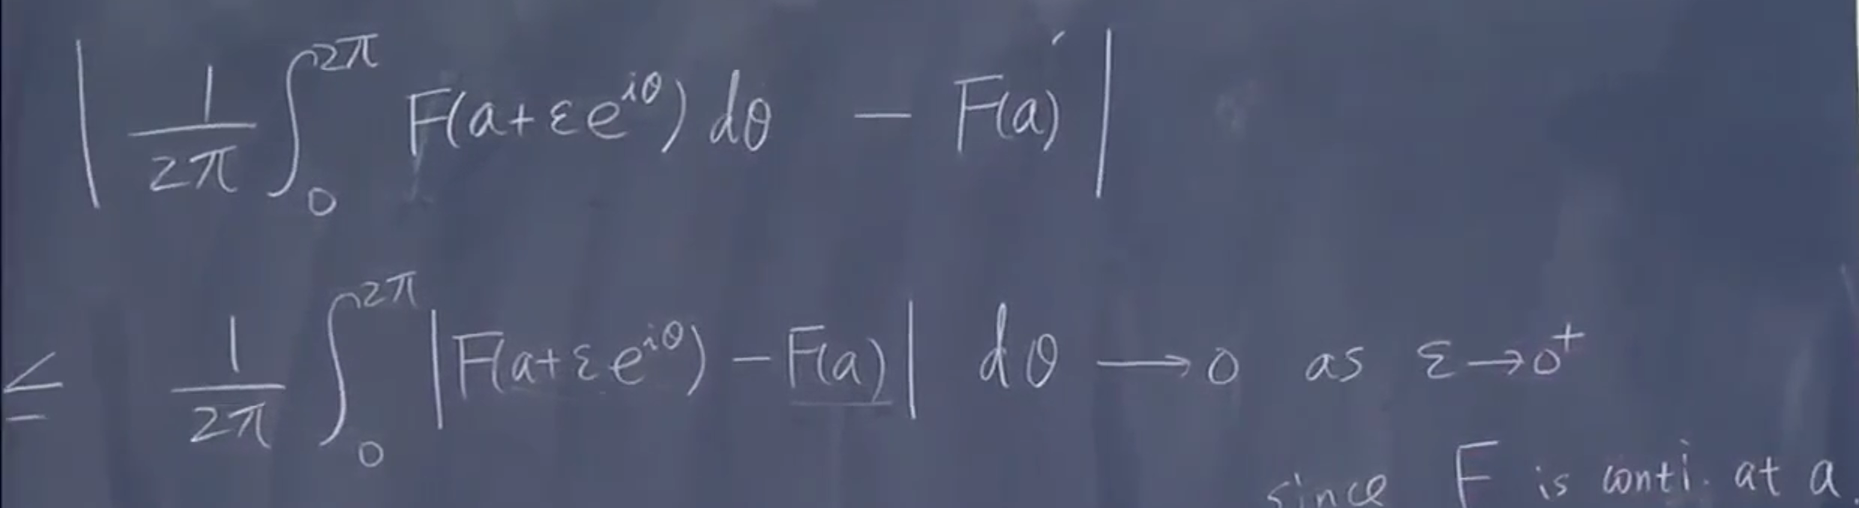 | 1/2π ∫₀^{2π} F(a+εe^{iθ}) dθ − F(a) |
≤ 1/2π ∫₀^{2π} |F(a+εe^{iθ}) − F(a)| dθ → 0 as ε→0⁺
since F is conti. at a.